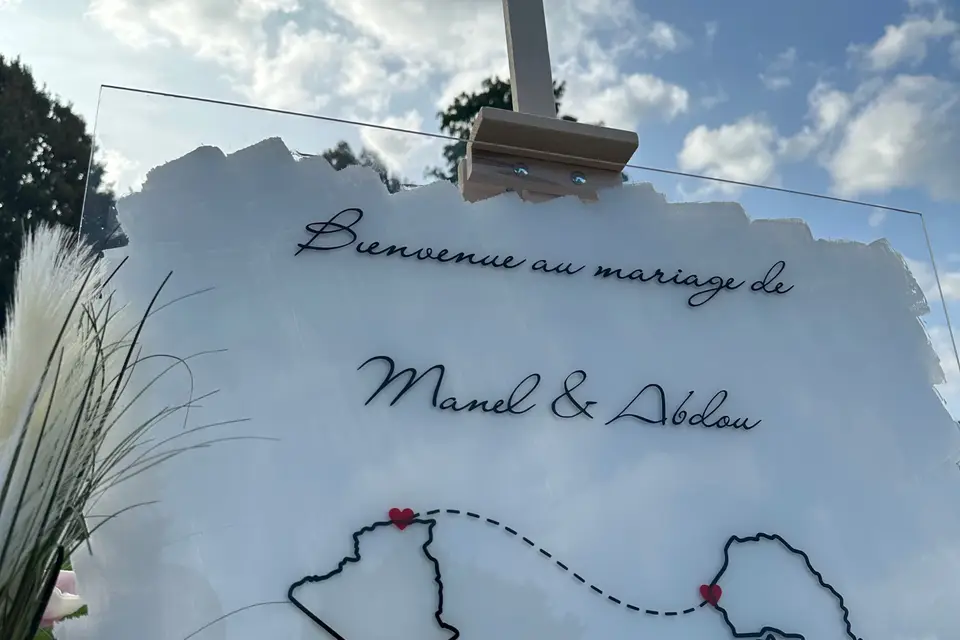 Bienvenue au mariage de
Manel & Abdou